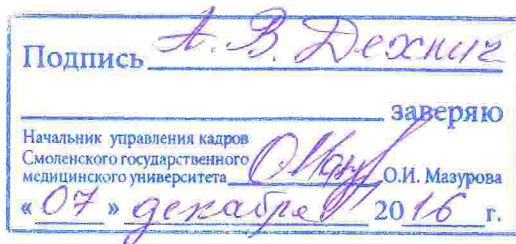 Подпись А. В. Дехнич
заверяю
Начальник управления кадров
Смоленского государственного
медицинского университета О.И. Мазурова
« 07 » декабря 2016 г.